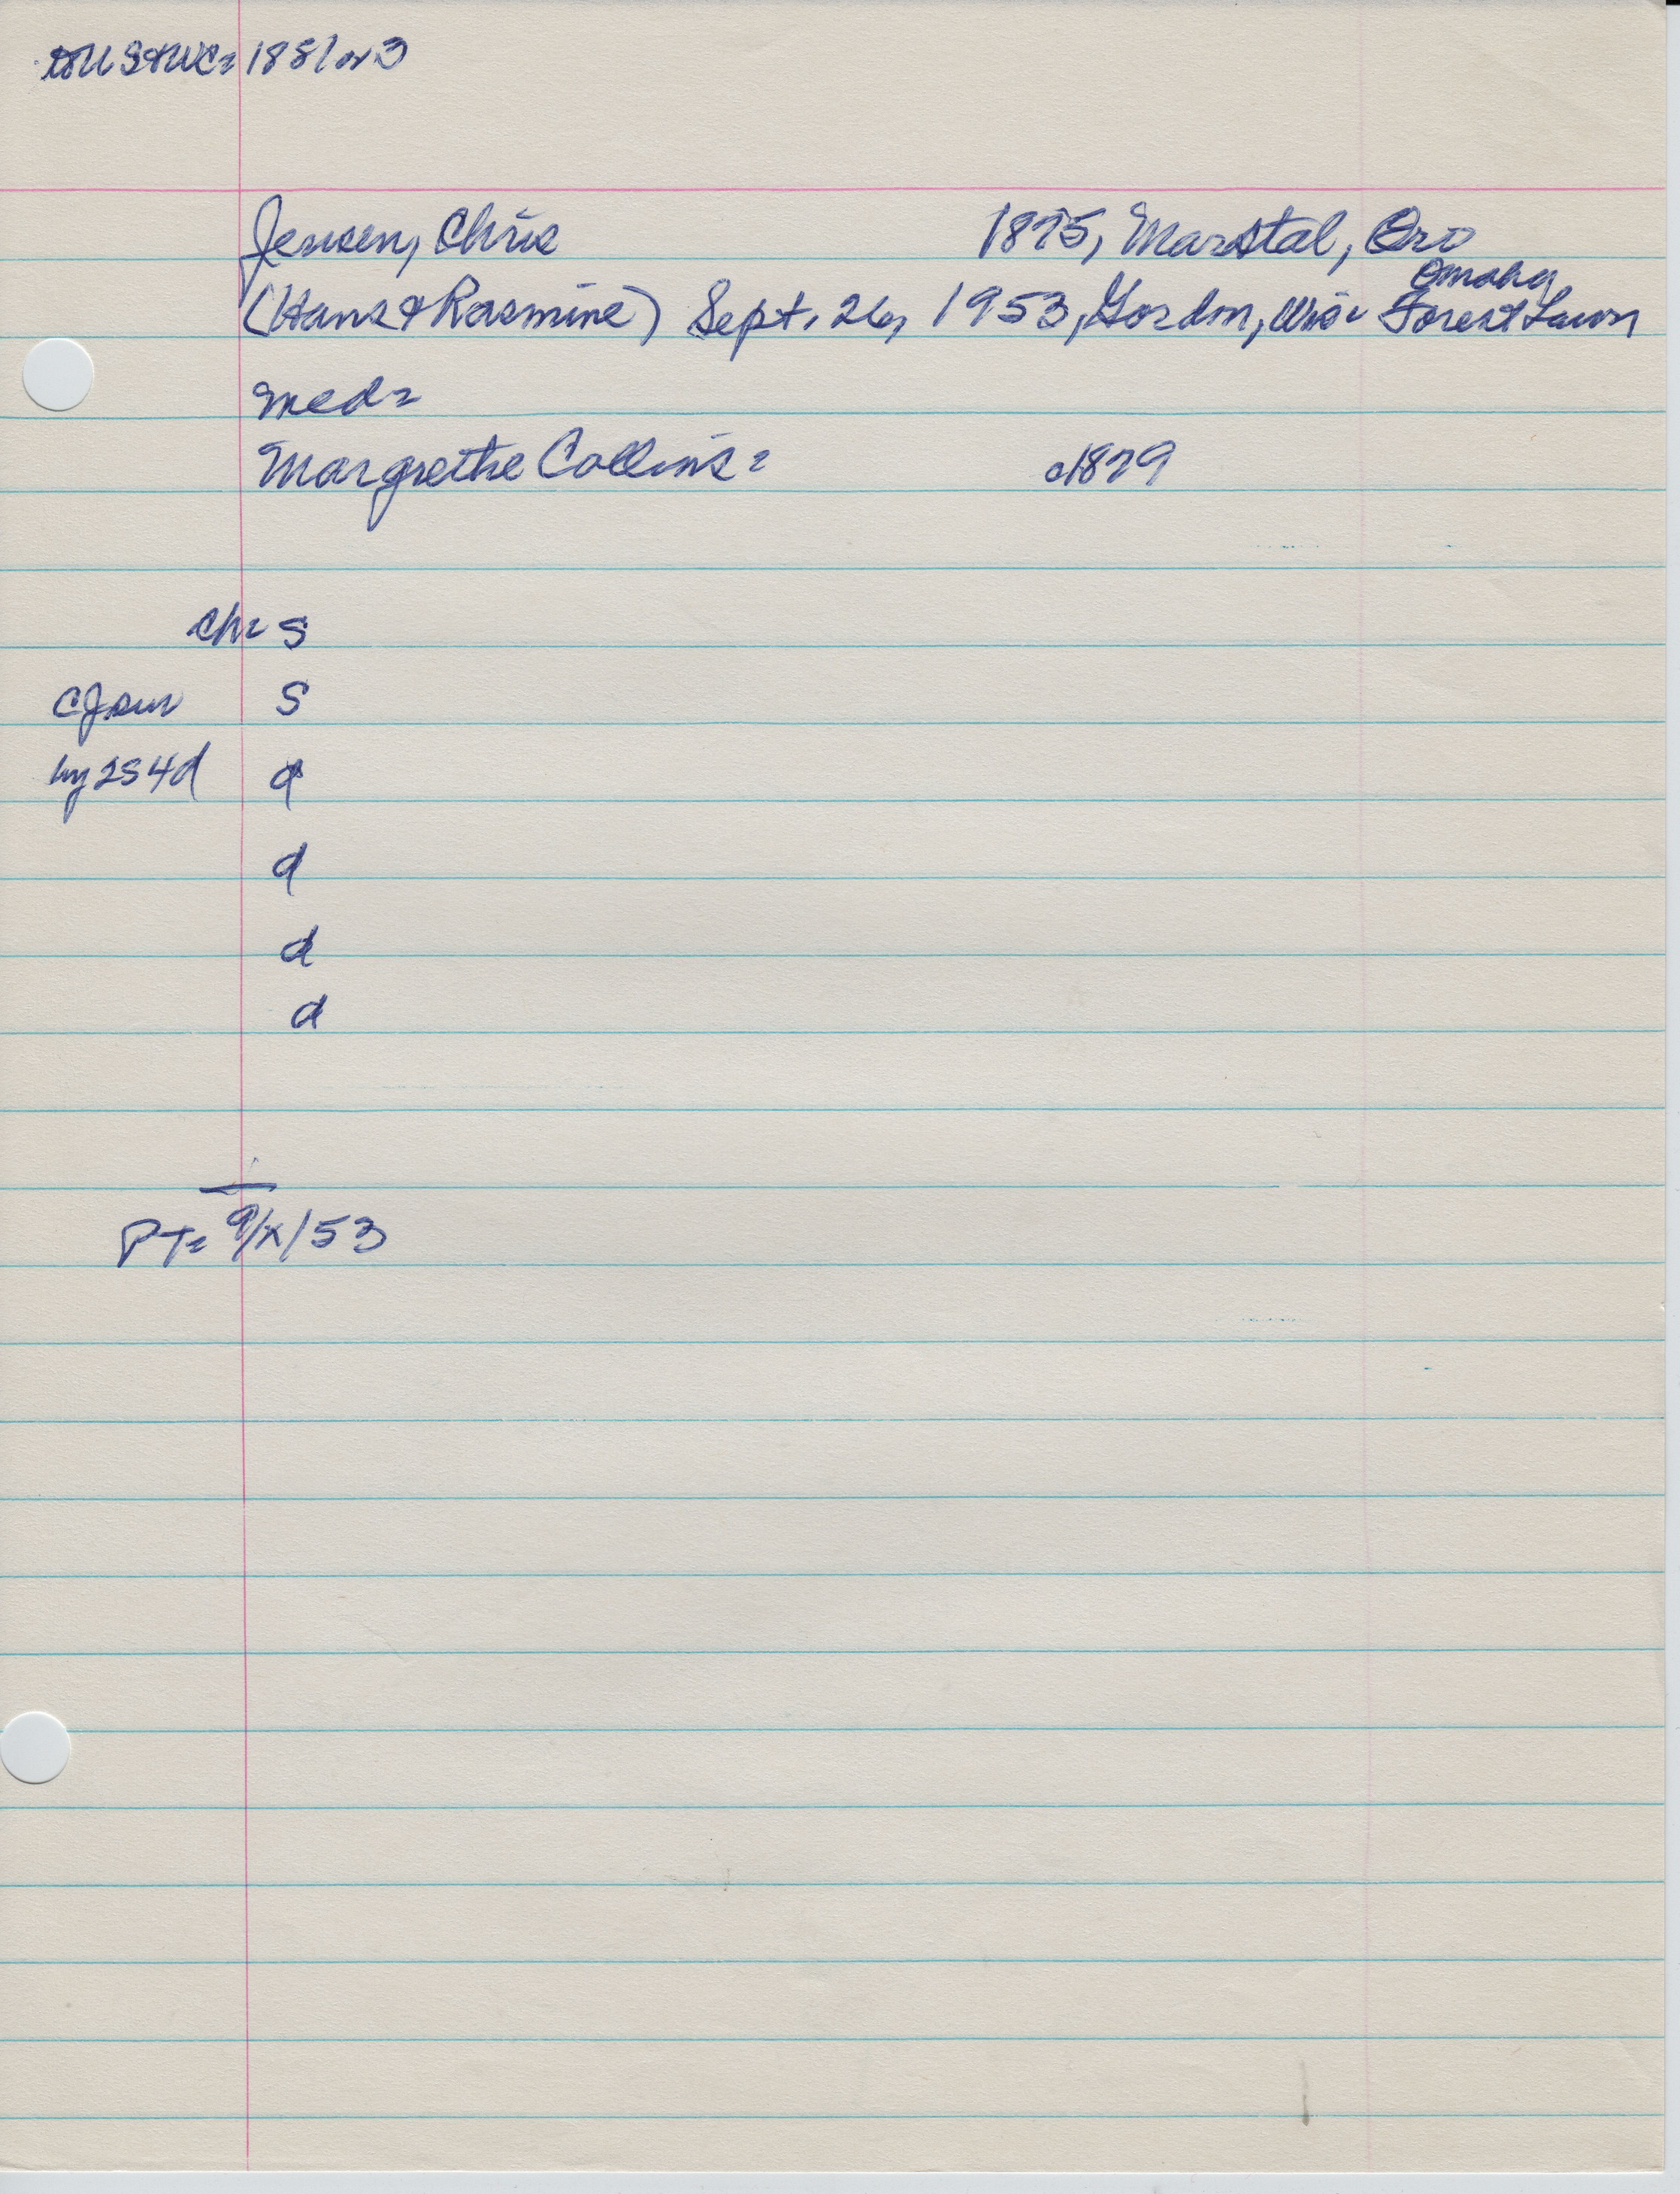 to US & WC = 1881 or 3
Jensen, Chris 1875, Marstal, Ærø
(Hans & Rasmine) Sept. 26, 1953, Gordon, Wis. Omaha Forest Lawn
med =
Margrethe Collins = c1879
ch = S
CJ sur S
by 2S 4d d
d
d
d
PT = 9/x/53